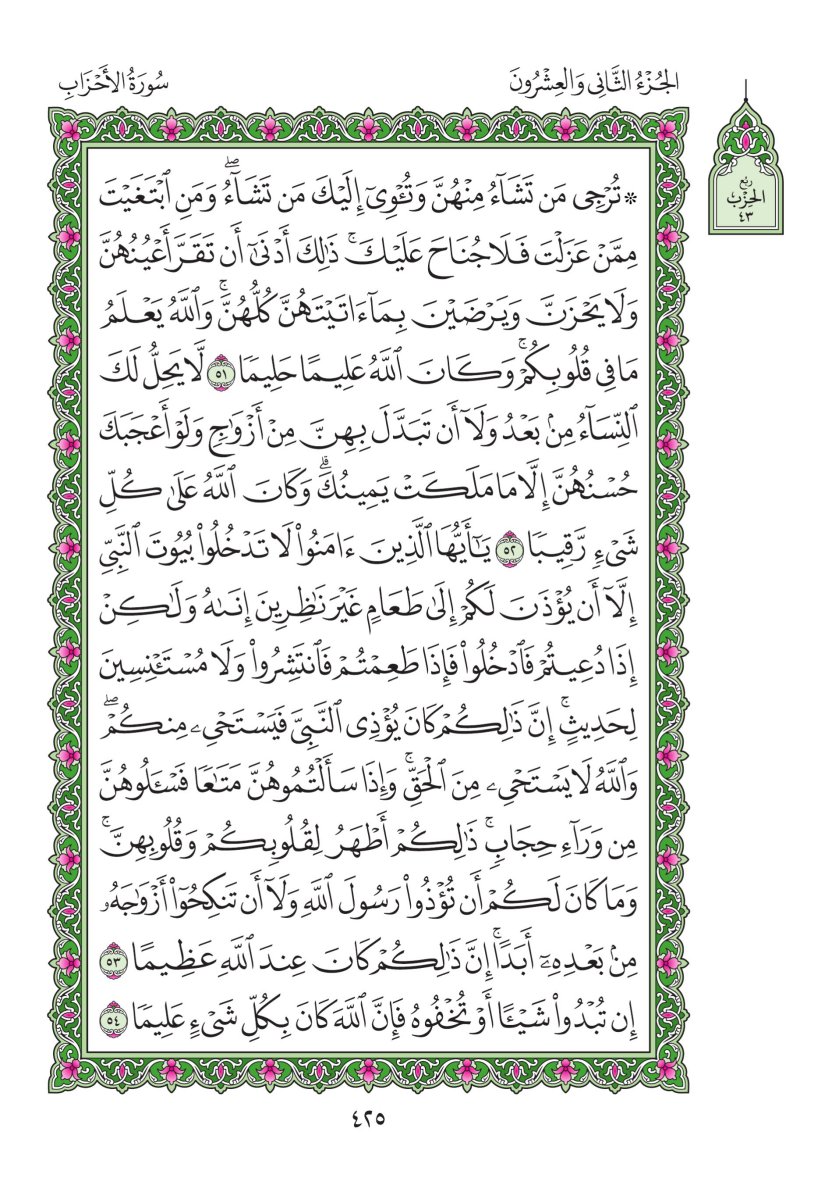 الجُزْءُ الثَّانِي وَالعِشْرُونَ
سُورَةُ الأَحْزَابِ
رُبْع
الحِزْب
٤٣
۞ تُرْجِي مَن تَشَآءُ مِنْهُنَّ وَتُـْٔوِيٓ إِلَيْكَ مَن تَشَآءُۖ وَمَنِ ٱبْتَغَيْتَ
مِمَّنْ عَزَلْتَ فَلَا جُنَاحَ عَلَيْكَۚ ذَٰلِكَ أَدْنَىٰٓ أَن تَقَرَّ أَعْيُنُهُنَّ
وَلَا يَحْزَنَّ وَيَرْضَيْنَ بِمَآ ءَاتَيْتَهُنَّ كُلُّهُنَّۚ وَٱللَّهُ يَعْلَمُ
مَا فِي قُلُوبِكُمْۚ وَكَانَ ٱللَّهُ عَلِيمًا حَلِيمًا ٥١ لَّا يَحِلُّ لَكَ
ٱلنِّسَآءُ مِنۢ بَعْدُ وَلَآ أَن تَبَدَّلَ بِهِنَّ مِنْ أَزْوَٰجٍ وَلَوْ أَعْجَبَكَ
حُسْنُهُنَّ إِلَّا مَا مَلَكَتْ يَمِينُكَۗ وَكَانَ ٱللَّهُ عَلَىٰ كُلِّ
شَيْءٍ رَّقِيبًا ٥٢ يَـٰٓأَيُّهَا ٱلَّذِينَ ءَامَنُوا۟ لَا تَدْخُلُوا۟ بُيُوتَ ٱلنَّبِيِّ
إِلَّآ أَن يُؤْذَنَ لَكُمْ إِلَىٰ طَعَامٍ غَيْرَ نَـٰظِرِينَ إِنَىٰهُ وَلَـٰكِنْ
إِذَا دُعِيتُمْ فَٱدْخُلُوا۟ فَإِذَا طَعِمْتُمْ فَٱنتَشِرُوا۟ وَلَا مُسْتَـْٔنِسِينَ
لِحَدِيثٍۚ إِنَّ ذَٰلِكُمْ كَانَ يُؤْذِي ٱلنَّبِيَّ فَيَسْتَحْيِۦ مِنكُمْۖ
وَٱللَّهُ لَا يَسْتَحْيِۦ مِنَ ٱلْحَقِّۚ وَإِذَا سَأَلْتُمُوهُنَّ مَتَـٰعًا فَسْـَٔلُوهُنَّ
مِن وَرَآءِ حِجَابٍۚ ذَٰلِكُمْ أَطْهَرُ لِقُلُوبِكُمْ وَقُلُوبِهِنَّۚ
وَمَا كَانَ لَكُمْ أَن تُؤْذُوا۟ رَسُولَ ٱللَّهِ وَلَآ أَن تَنكِحُوٓا۟ أَزْوَٰجَهُۥ
مِنۢ بَعْدِهِۦٓ أَبَدًاۚ إِنَّ ذَٰلِكُمْ كَانَ عِندَ ٱللَّهِ عَظِيمًا ٥٣
إِن تُبْدُوا۟ شَيْـًٔا أَوْ تُخْفُوهُ فَإِنَّ ٱللَّهَ كَانَ بِكُلِّ شَيْءٍ عَلِيمًا ٥٤
٤٢٥